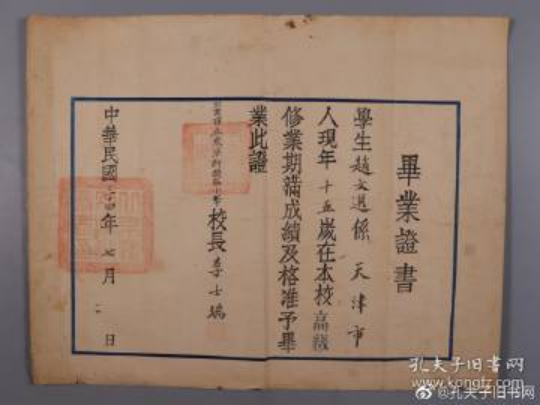 畢業證書
學生趙文選係天津市
人現年十五歲在本校高級
修業期滿成績及格准予畢
業此證
校長李士瑞
中華民國二十四年七月二日
孔夫子旧书网
kongfz.com
@孔夫子旧书网